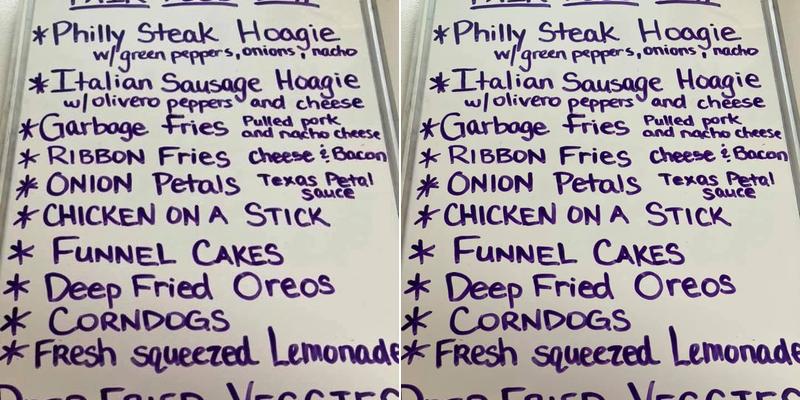 *Philly Steak Hoagie
w/green peppers, onions, nacho
*Italian Sausage Hoagie
w/ olivero peppers and cheese
*Garbage Fries Pulled pork
and nacho cheese
* RIBBON Fries cheese & Bacon
* ONION Petals Texas Petal
sauce
* CHICKEN ON A STICK
* FUNNEL CAKES
* Deep Fried Oreos
* CORNDOGS
* FResh squeezed Lemonade
DEEP FRIED VEGGIES
*Philly Steak Hoagie
w/green peppers, onions, nacho
*Italian Sausage Hoagie
w/ olivero peppers and cheese
*Garbage Fries Pulled pork
and nacho cheese
* RIBBON Fries cheese & Bacon
* ONION Petals Texas Petal
sauce
* CHICKEN ON A STICK
* FUNNEL CAKES
* Deep Fried Oreos
* CORNDOGS
* FResh squeezed Lemonade
DEEP FRIED VEGGIES